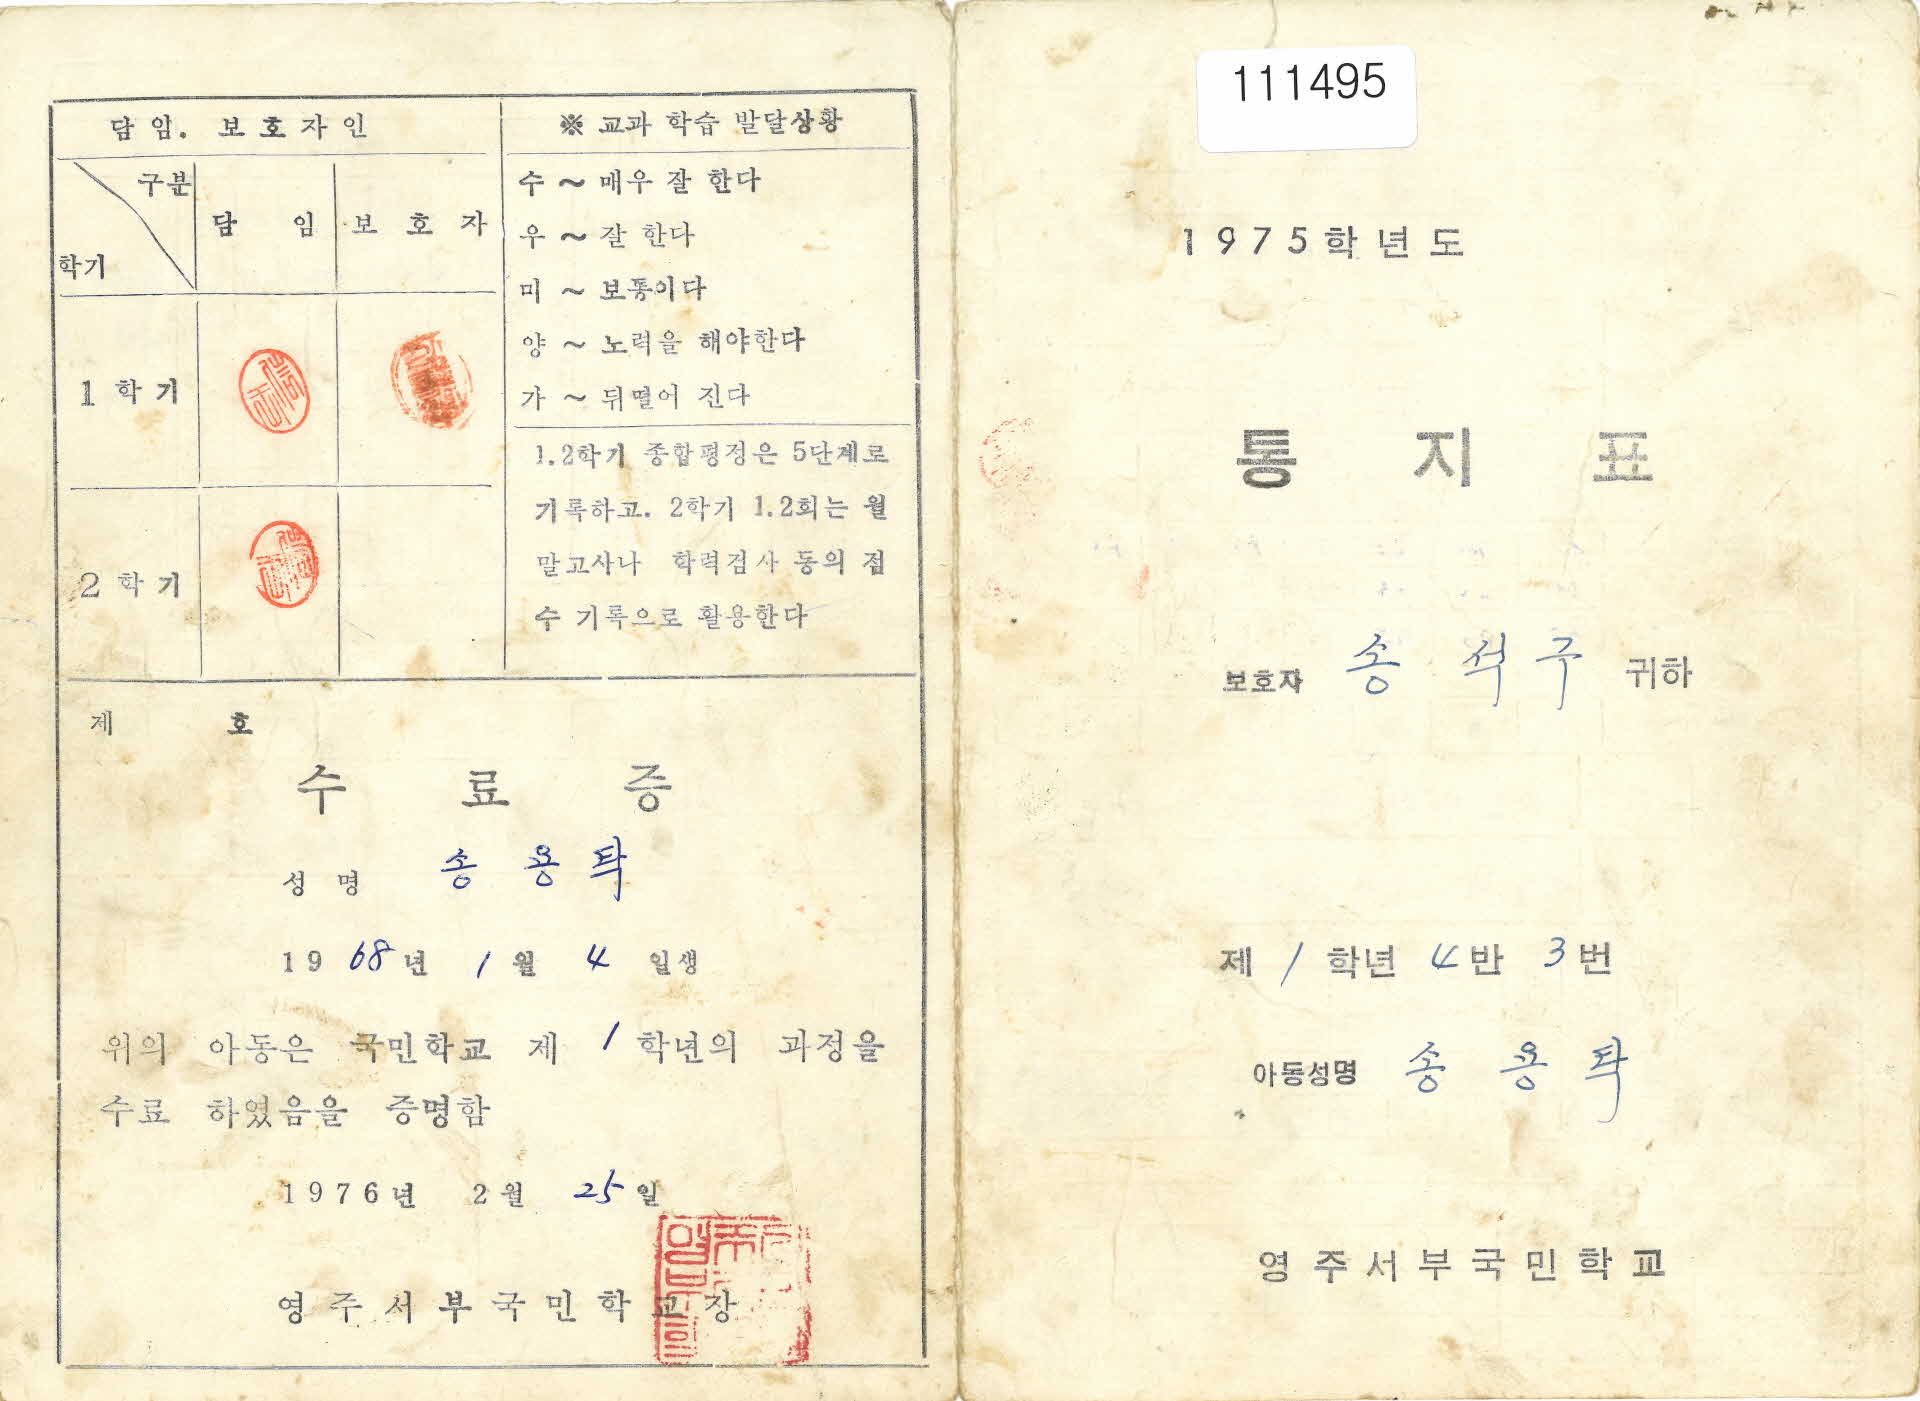 담임. 보호자인
구분
학기
담 임
보 호 자
1 학 기
2 학 기
※ 교과 학습 발달상황
수 ~ 매우 잘 한다
우 ~ 잘 한다
미 ~ 보통이다
양 ~ 노력을 해야한다
가 ~ 뒤떨어 진다
1.2학기 종합평정은 5단계로
기록하고. 2학기 1.2회는 월
말고사나 학력검사 등의 점
수 기록으로 활용한다
제 호
수 료 증
성 명 송 용 탁
1968년 1월 4일생
위의 아동은 국민학교 제 1 학년의 과정을
수료 하였음을 증명함
1976년 2월 25일
영주서부국민학교장
111495
1975학년도
통 지 표
보호자 송 석 구 귀하
제 1 학년 4반 3번
아동성명 송 용 탁
영주서부국민학교